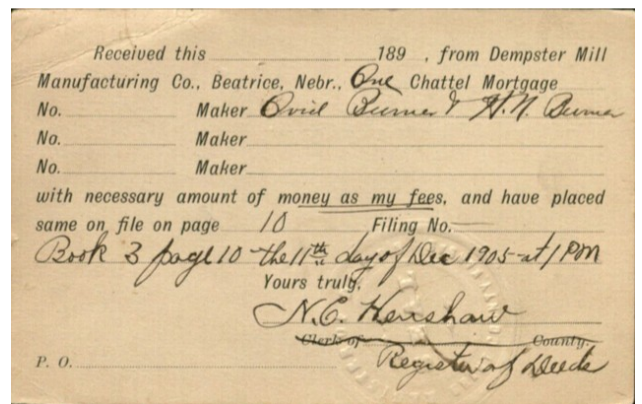 Received this 189 , from Dempster Mill
Manufacturing Co., Beatrice, Nebr., One Chattel Mortgage
No. Maker Ovid Burner & H. N. Burner
No. Maker
No. Maker
with necessary amount of money as my fees, and have placed
same on file on page 10 Filing No.
Book 3 page 10 the 11th day of Dec 1905 at 1 PM
Yours truly,
N. C. Henshaw
Clerk of County.
P. O. Register of Deeds